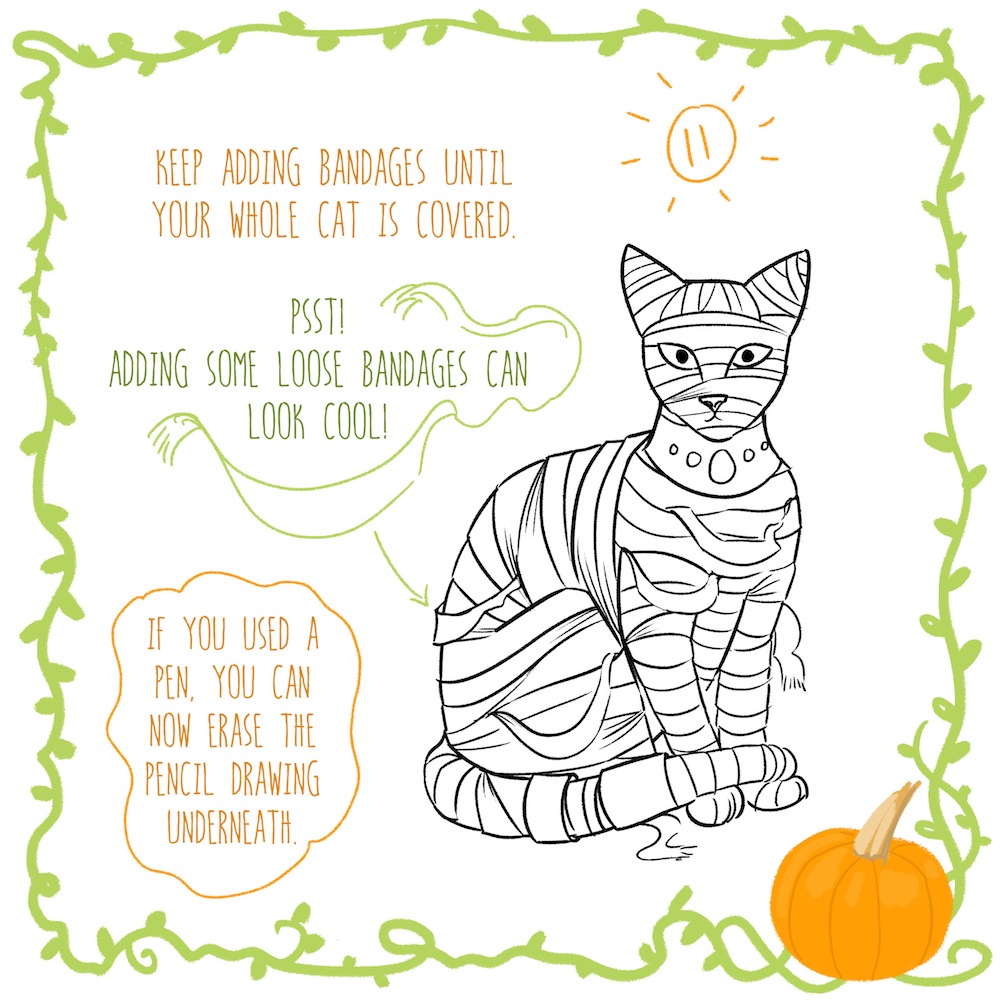 11
KEEP ADDING BANDAGES UNTIL
YOUR WHOLE CAT IS COVERED.
PSST!
ADDING SOME LOOSE BANDAGES CAN
LOOK COOL!
IF YOU USED A
PEN, YOU CAN
NOW ERASE THE
PENCIL DRAWING
UNDERNEATH.